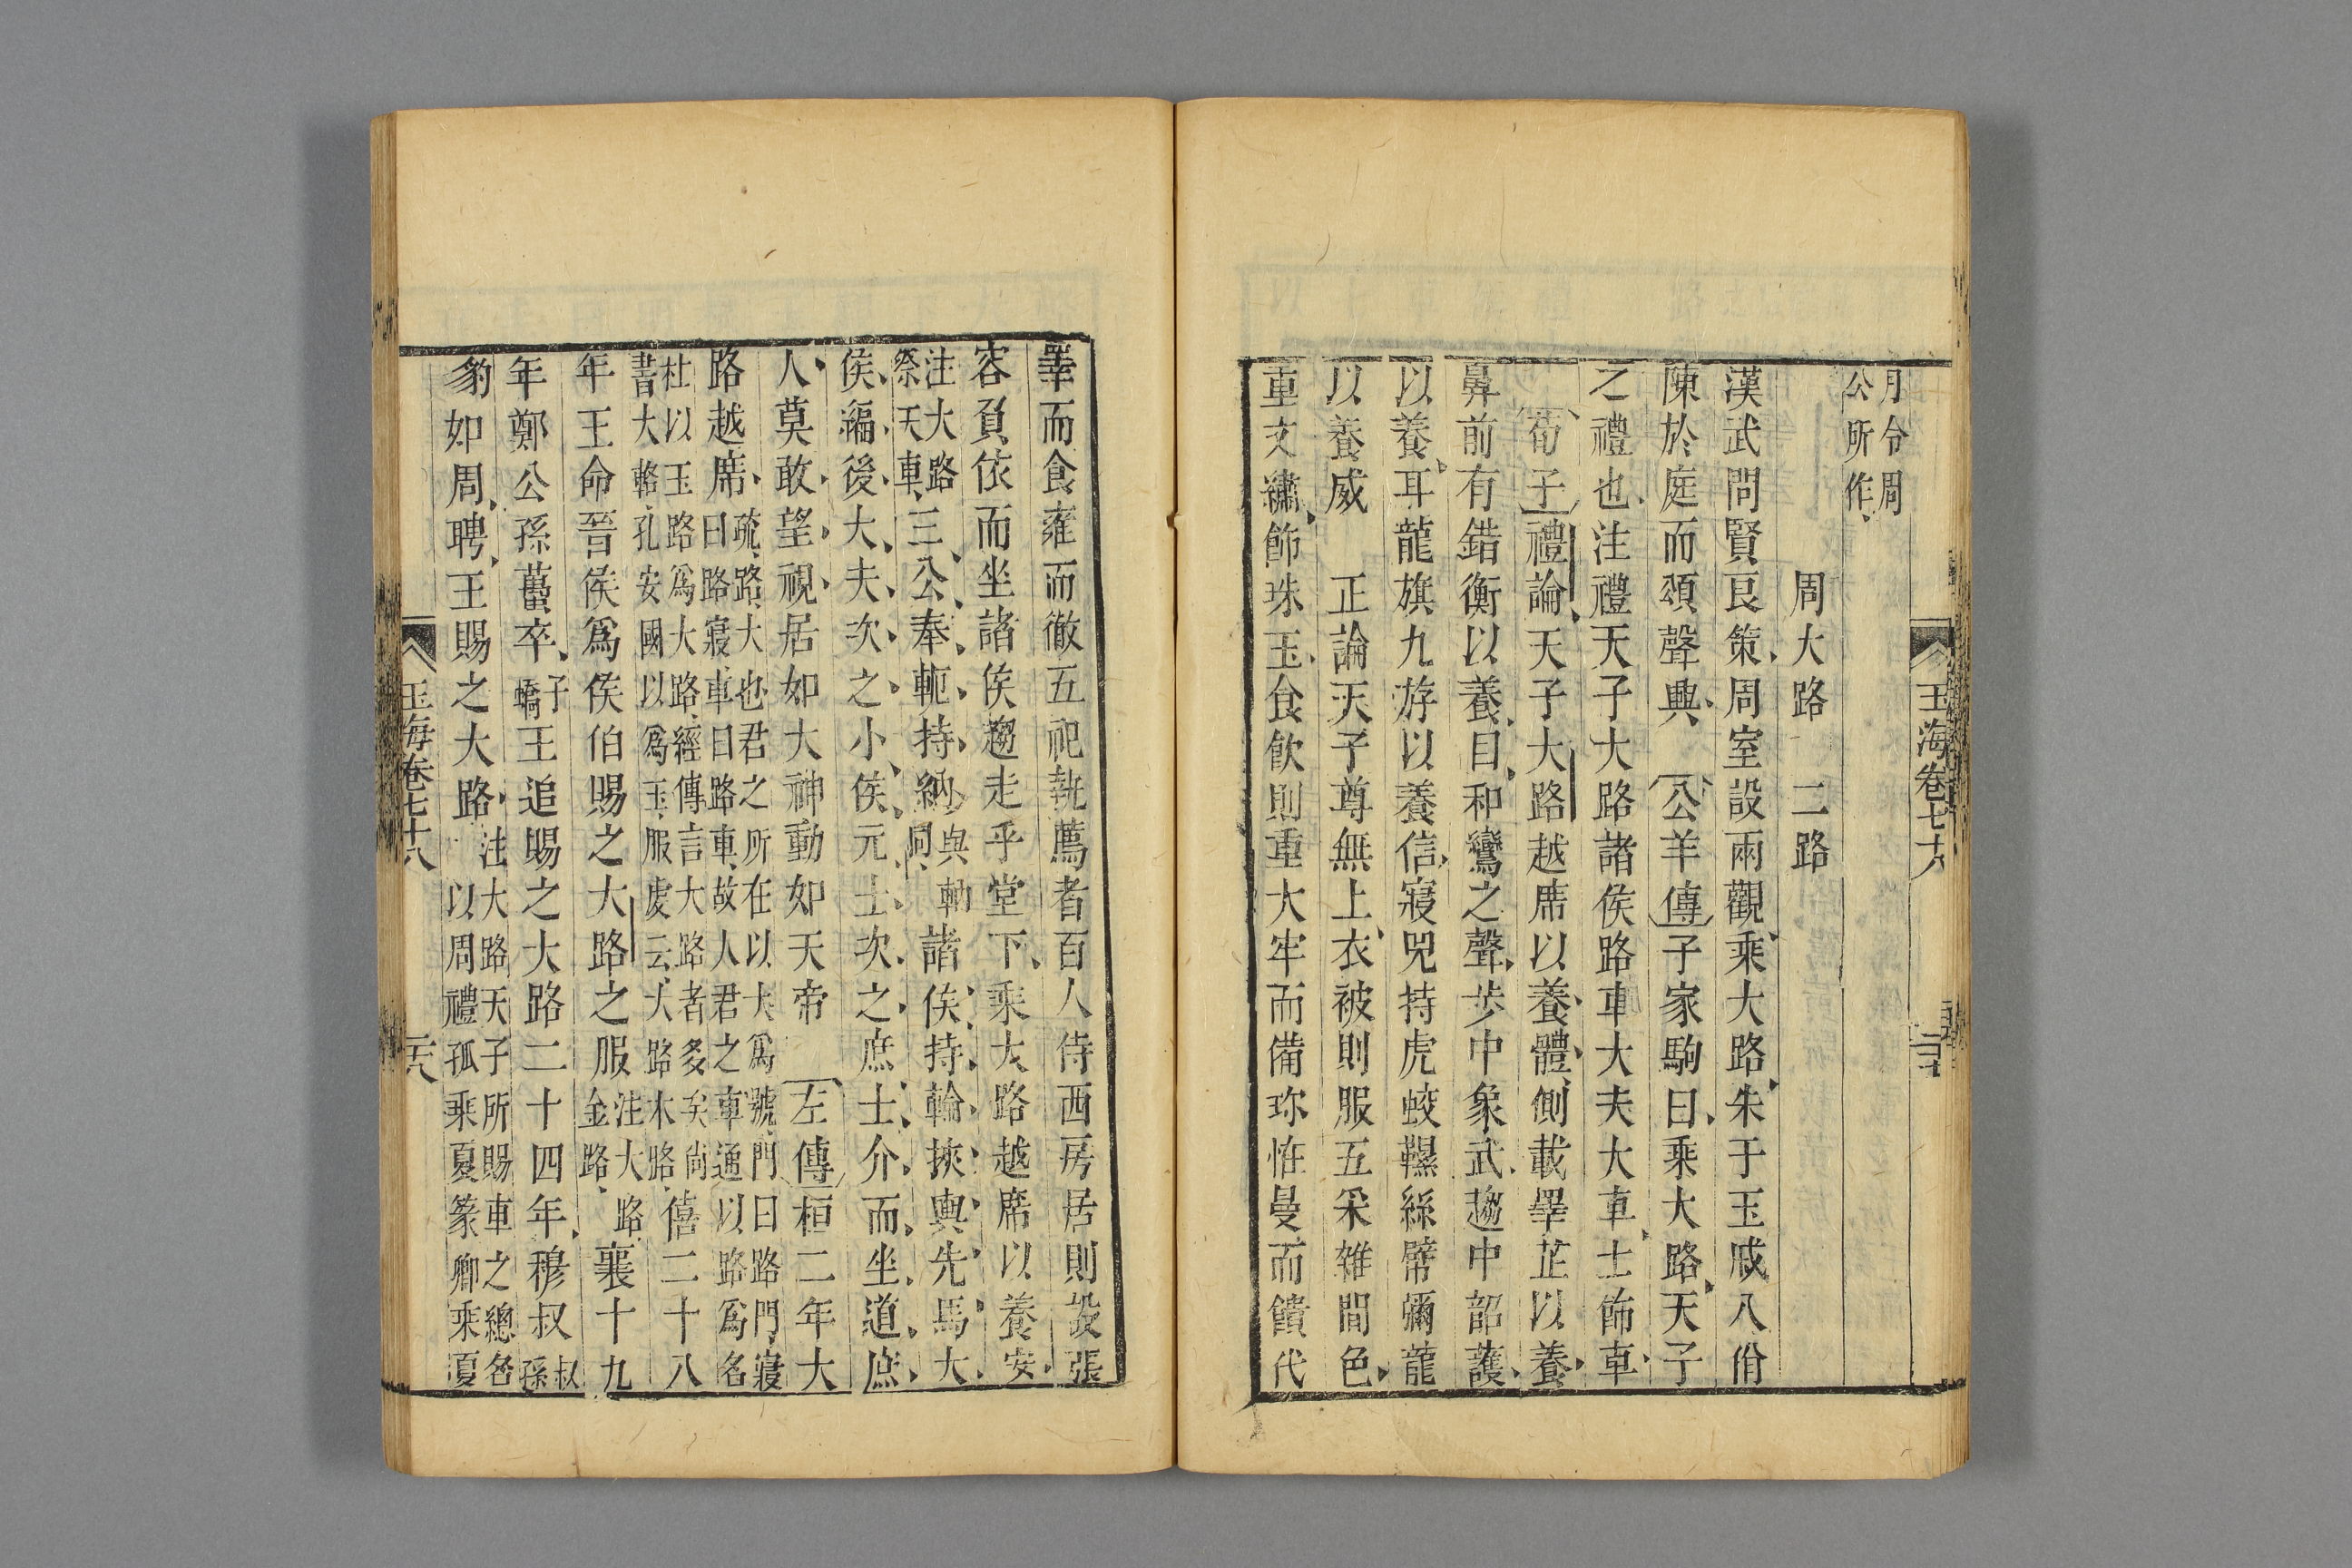 玉海卷七十八
月令周
公所作
周大路　二路
漢武問賢良策周室設兩觀乘大路朱于玉戚八佾
陳於庭而頌聲興　公羊傳子家駒曰乘大路天子
之禮也注禮天子大路諸侯路車大夫大車士飾車
荀子禮論天子大路越席以養體側載睪芷以養
鼻前有錯衡以養目和鸞之聲步中象武趨中韶護
以養耳龍旗九斿以養信寢兕持虎蛟韅絲幦彌龍
以養威　正論天子尊無上衣被則服五采雜間色
重文繡飾珠玉食飲則重大牢而備珍怪曼而饋代
睪而食雍而徹五祀執薦者百人侍西房居則設張
容負依而坐諸侯趨走乎堂下乘大路越席以養安
注大路
祭天車
三公奉軛持納
與軜
同
諸侯持輪挾輿先馬大
侯編後大夫次之小侯元士次之庶士介而坐道庶
人莫敢望視居如大神動如天帝　左傳桓二年大
路越席
疏路大也君之所在以大爲號門曰路門寢
曰路寢車曰路車故人君之車通以路爲名
杜以玉路爲大路經傳言大路者多矣尙
書大輅孔安國以爲玉服虔云大路木路
僖二十八
年王命晉侯爲侯伯賜之大路之服
注大路
金路
襄十九
年鄭公孫蠆卒
子
蟜
王追賜之大路二十四年穆叔
叔
孫
豹如周聘王賜之大路
注大路天子所賜車之總名
以周禮孤乘夏篆卿乘夏
玉海卷七十八
二十八